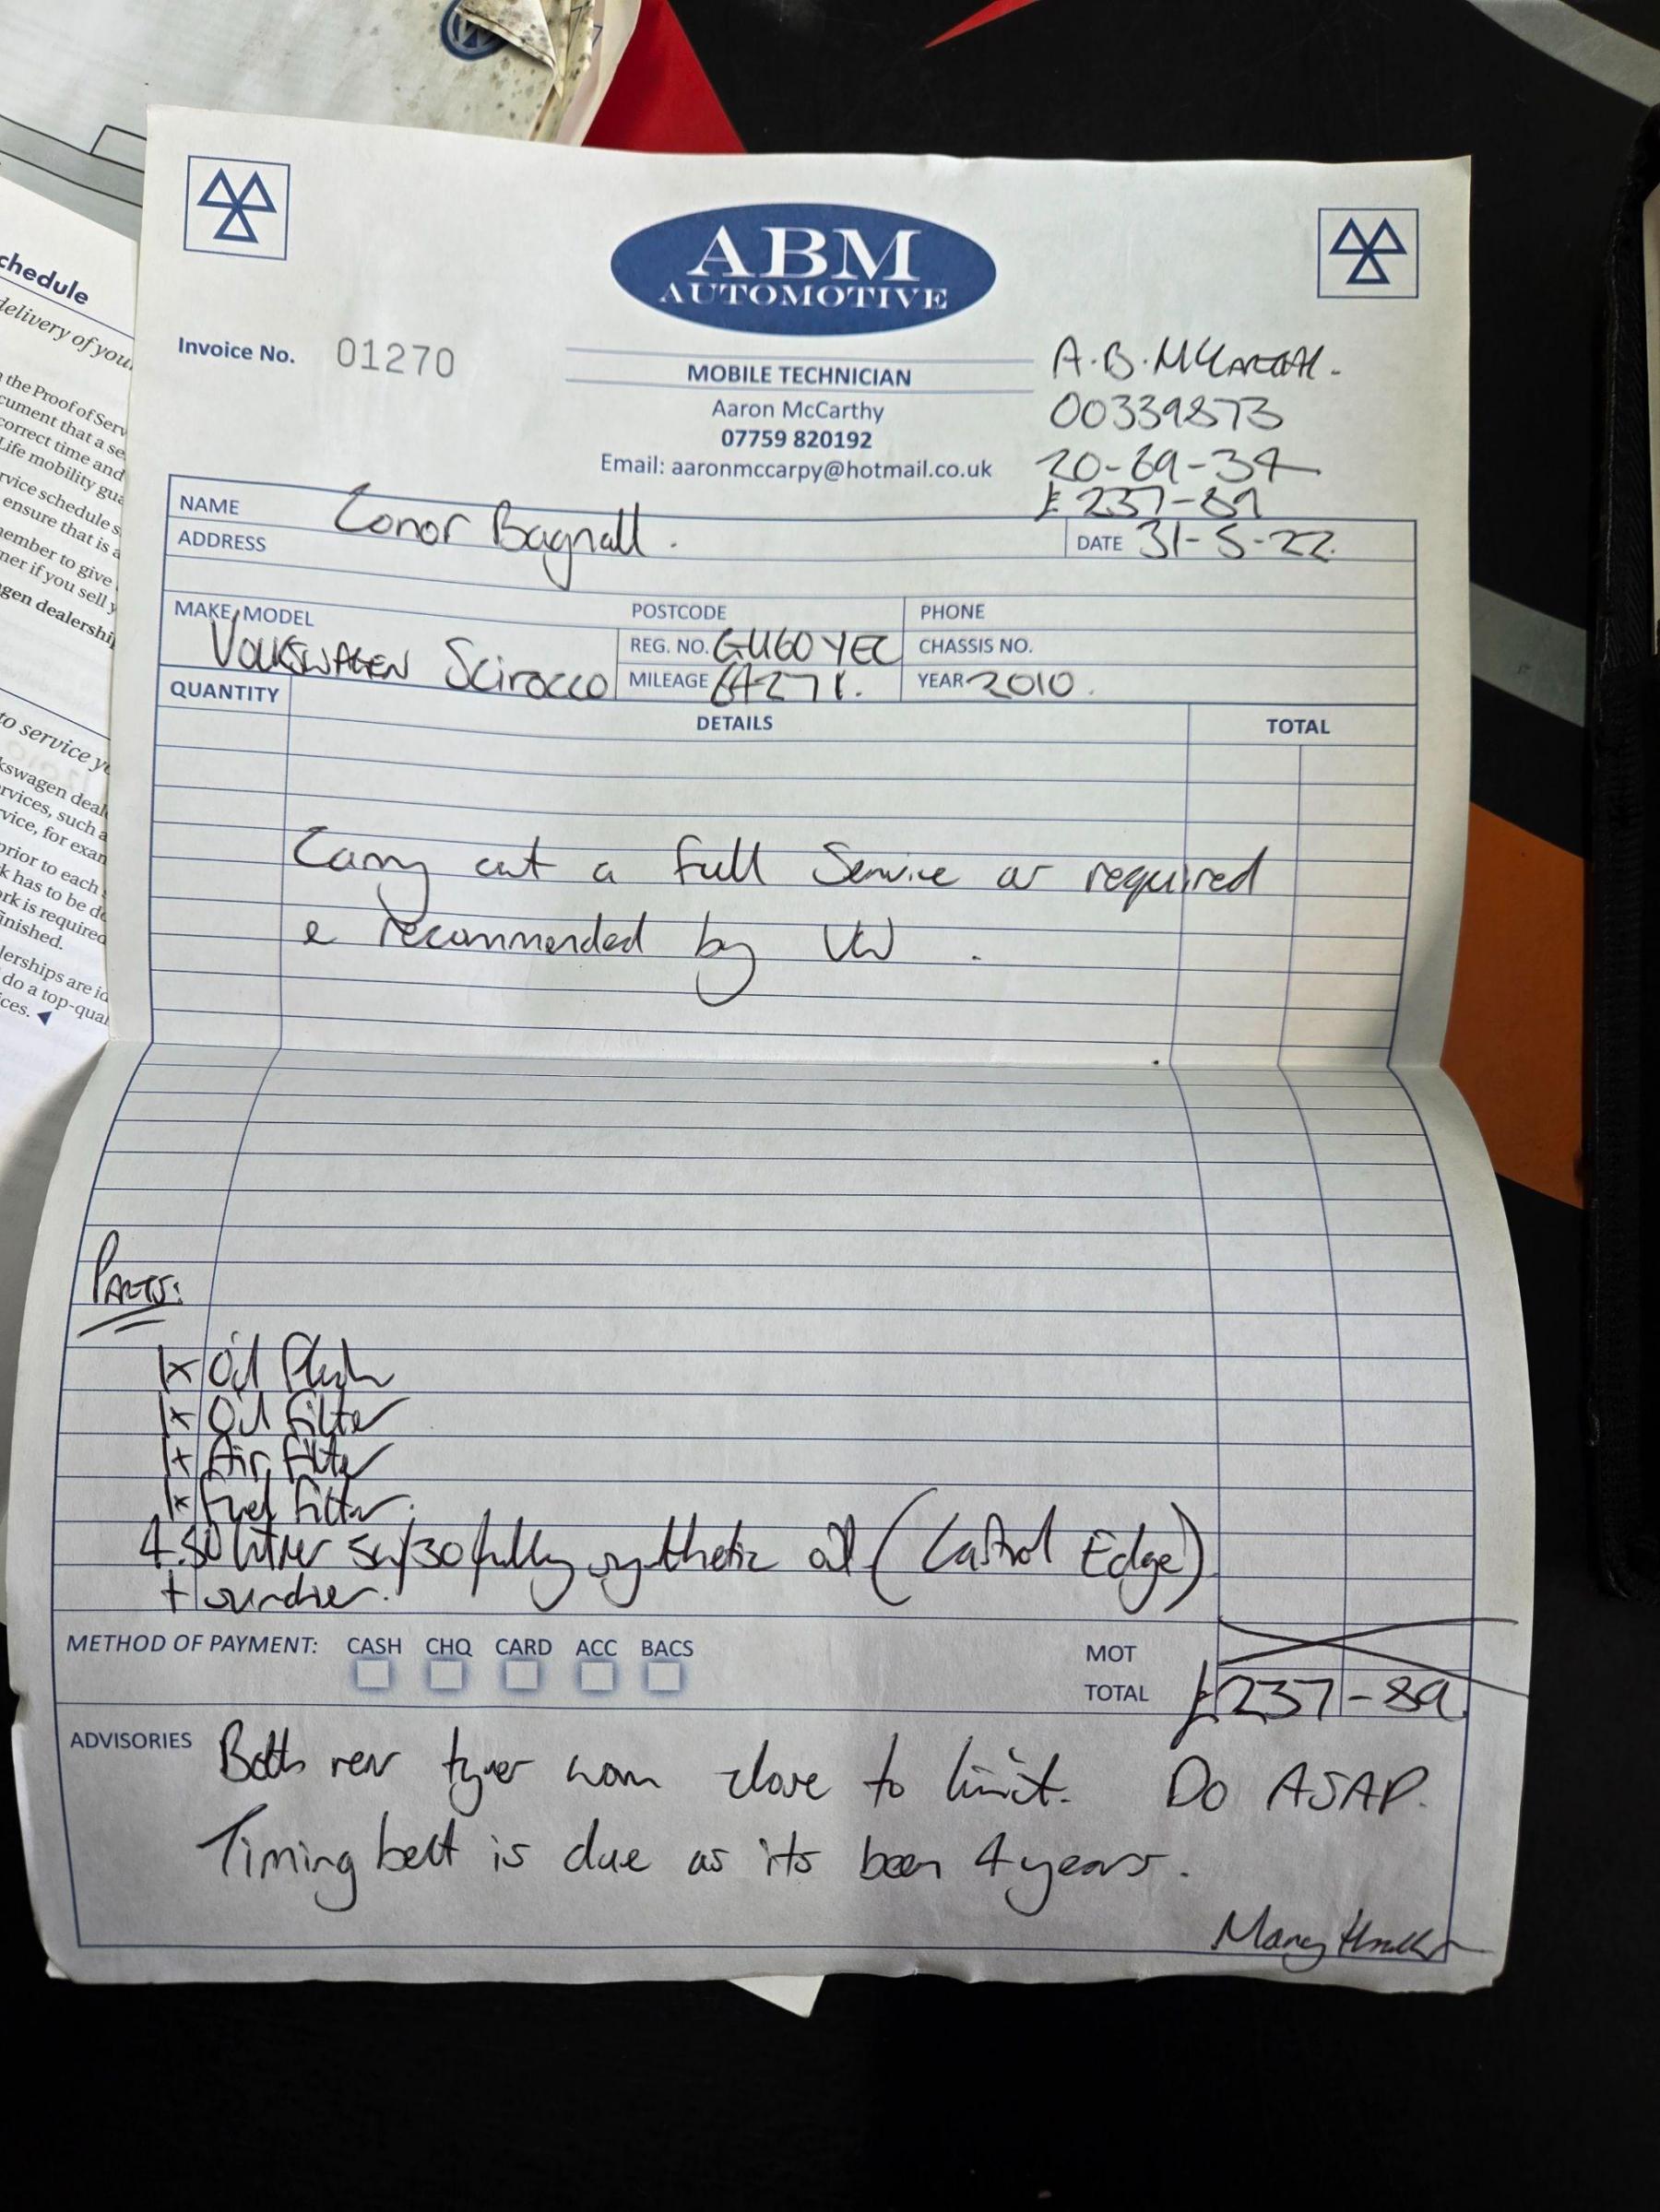 chedule
delivery of your
the Proof of Serv
cument that a se
correct time and
Life mobility gua
rvice schedule s
ensure that is a
member to give
ner if you sell y
gen dealershi
to service yo
kswagen deal
rvices, such a
vice, for exam
prior to each s
k has to be do
ork is required
finished.
lerships are id
do a top-qual
ices.
ABM
AUTOMOTIVE
Invoice No. 01270
MOBILE TECHNICIAN
Aaron McCarthy
07759 820192
Email: aaronmccarpy@hotmail.co.uk
A.B. McCarthy.
00339873
20-69-34
£237-89
NAME Conor Bagnall.
ADDRESS
DATE 31-5-22.
MAKE/MODEL Volkswagen Scirocco
POSTCODE
PHONE
REG. NO. GU60 YEC
CHASSIS NO.
MILEAGE 64271.
YEAR 2010.
QUANTITY DETAILS TOTAL
Carry out a full Service as required
& recommended by VW.
Parts:
1x Oil Flush
1x Oil Filter
1x Air Filter
1x Fuel Filter.
4.50 litres 5w/30 fully synthetic oil (Castrol Edge)
+ sundries.
METHOD OF PAYMENT: CASH CHQ CARD ACC BACS
MOT
TOTAL £237-89
ADVISORIES Both rear tyres worn close to limit. Do ASAP.
Timing belt is due as its been 4 years.
Many thanks